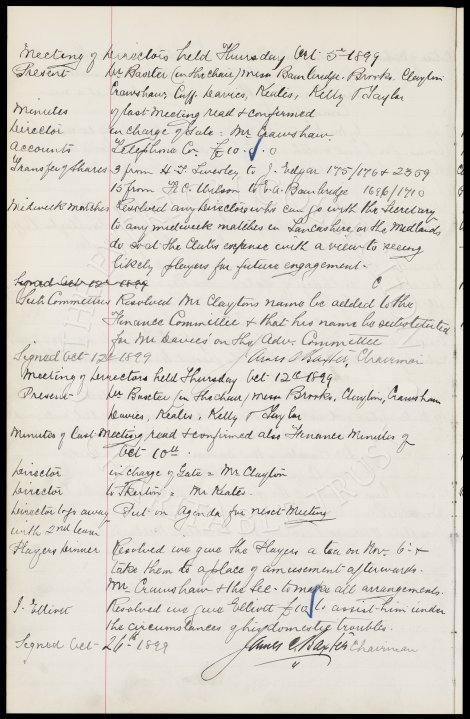 Meeting of Directors held Thursday Oct 5th 1899
Present Dr Baxter (in the chair) Messrs Bainbridge. Brooks, Clayton
Crawshaw, Cuff, Davies, Keates, Kelly & Taylor
Minutes of last Meeting read & confirmed
Director in charge of Gate = Mr Crawshaw.
Accounts Telephone Co. £10. 0. 0
Transfer of Shares 3 from H. J. to J. Edgar 175/176 & 2359
15 from H.C. Wilson to E. A. Bainbridge 1696/1710
Midweek matches Resolved any Directors who can go with the Secretary
to any midweek matches in Lancashire or the Midlands
do so at the Clubs expense with a view to seeing
likely players for future engagement.
Signed Oct 12th 1899
Sub Committees Resolved Mr Claytons name be added to the
Finance Committee & that his name be substituted
for Mr Davies on the Adv. Committee
Signed Oct 12th 1899 James C Baxter, Chairman
Meeting of Directors held Thursday Oct 12th 1899
Present Dr Baxter (in the chair) Messrs Brooks, Clayton, Crawshaw
Davies, Keates, Kelly & Taylor
Minutes of last Meeting read & confirmed also Finance Minutes of
Oct 10th.
Director in charge of Gate = Mr Clayton
Director to = Mr Keates.
Director to go away Put on Agenda for next Meeting
with 2nd team
Players Dinner Resolved we give the Players a tea on Nov. 6th &
take them to a place of amusement afterwards.
Mr Crawshaw & the Sec. to make all arrangements.
J. Elliott Resolved we give Elliott £10 to assist him under
the circumstances of his domestic troubles.
Signed Oct 26th 1899 James C Baxter Chairman